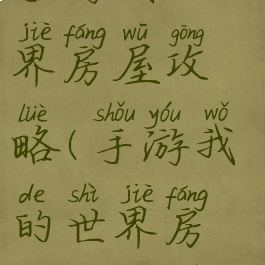 jiè fáng wū gōng
界房屋攻
lüè shǒu yóu wǒ
略(手游我
de shì jiè fáng
的世界房